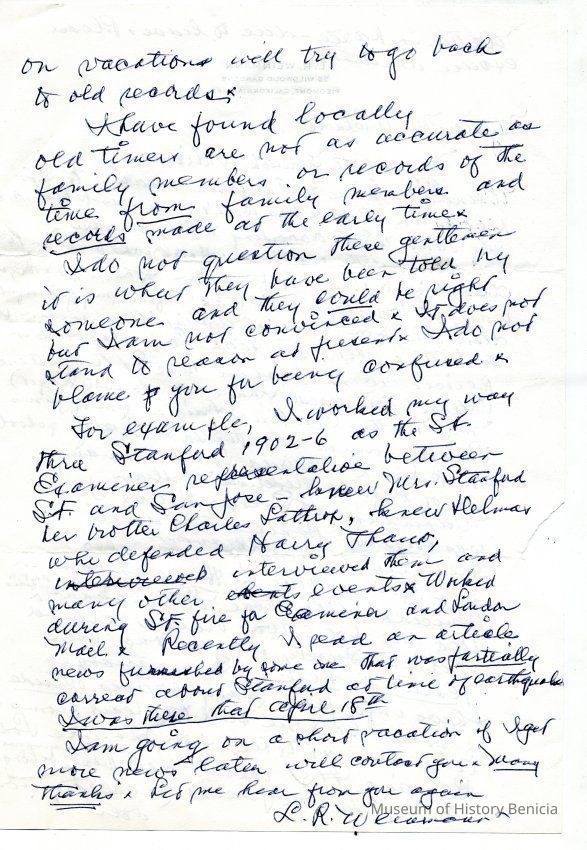 on vacation will try to go back
to old records x
I have found locally
old timers are not as accurate as
family members or records of the
time from family members and
records made at the early time x
I do not question these gentlemen
it is what they have been told by
someone and they could be right
but I am not convinced x It does not
stand to reason at present x I do not
blame you for being confused x
For example, I worked my way
thru Stanford 1902-6 as the S.F.
Examiner representative between
S.F. and San Jose - knew Mrs. Stanford
her brother Charles Lathrop, knew Delmas
who defended Harry Thaw,
interviewed them and
many other events x Worked
during S.F. fire for Examiner and London
Mail x Recently I read an article
news furnished by some one that was partially
correct about Stanford at time of earthquake
I was there that april 18th
I am going on a short vacation if I get
more news later will contact you x Many
thanks x Let me hear from you again
L. R.
Museum of History Benicia